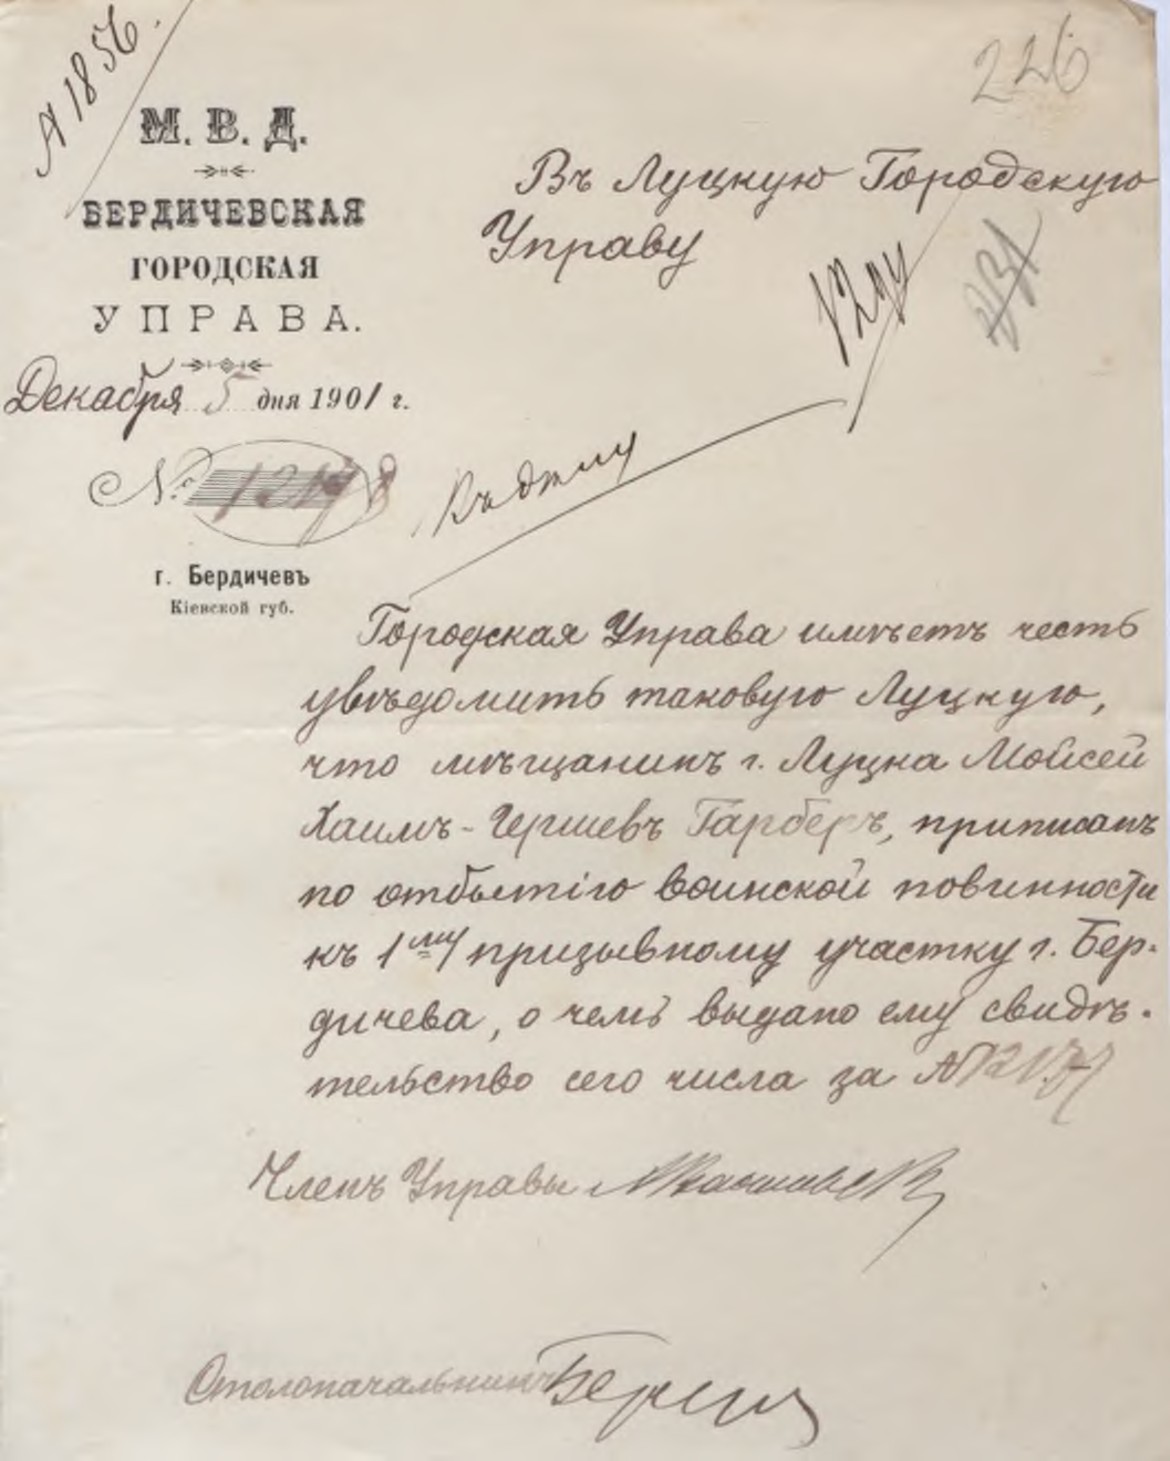 А 1856.
226
М. В. Д.
БЕРДИЧЕВСКАЯ
ГОРОДСКАЯ
УПРАВА.
Декабря 5 дня 1901 г.
№
г. Бердичевъ
Кіевской губ.
Въ Луцкую Городскую
Управу
Къ дѣлу
Городская Управа имѣетъ честь
увѣдомить таковую Луцкую,
что мѣщанинъ г. Луцка Мойсей
Хаимъ-Гершевъ Гарберъ, приписанъ
по отбытію воинской повинности
къ 1му призывному участку г. Бер-
дичева, о чемъ выдано ему свидѣ-
тельство сего числа за №
Членъ Управы
Столоначальникъ